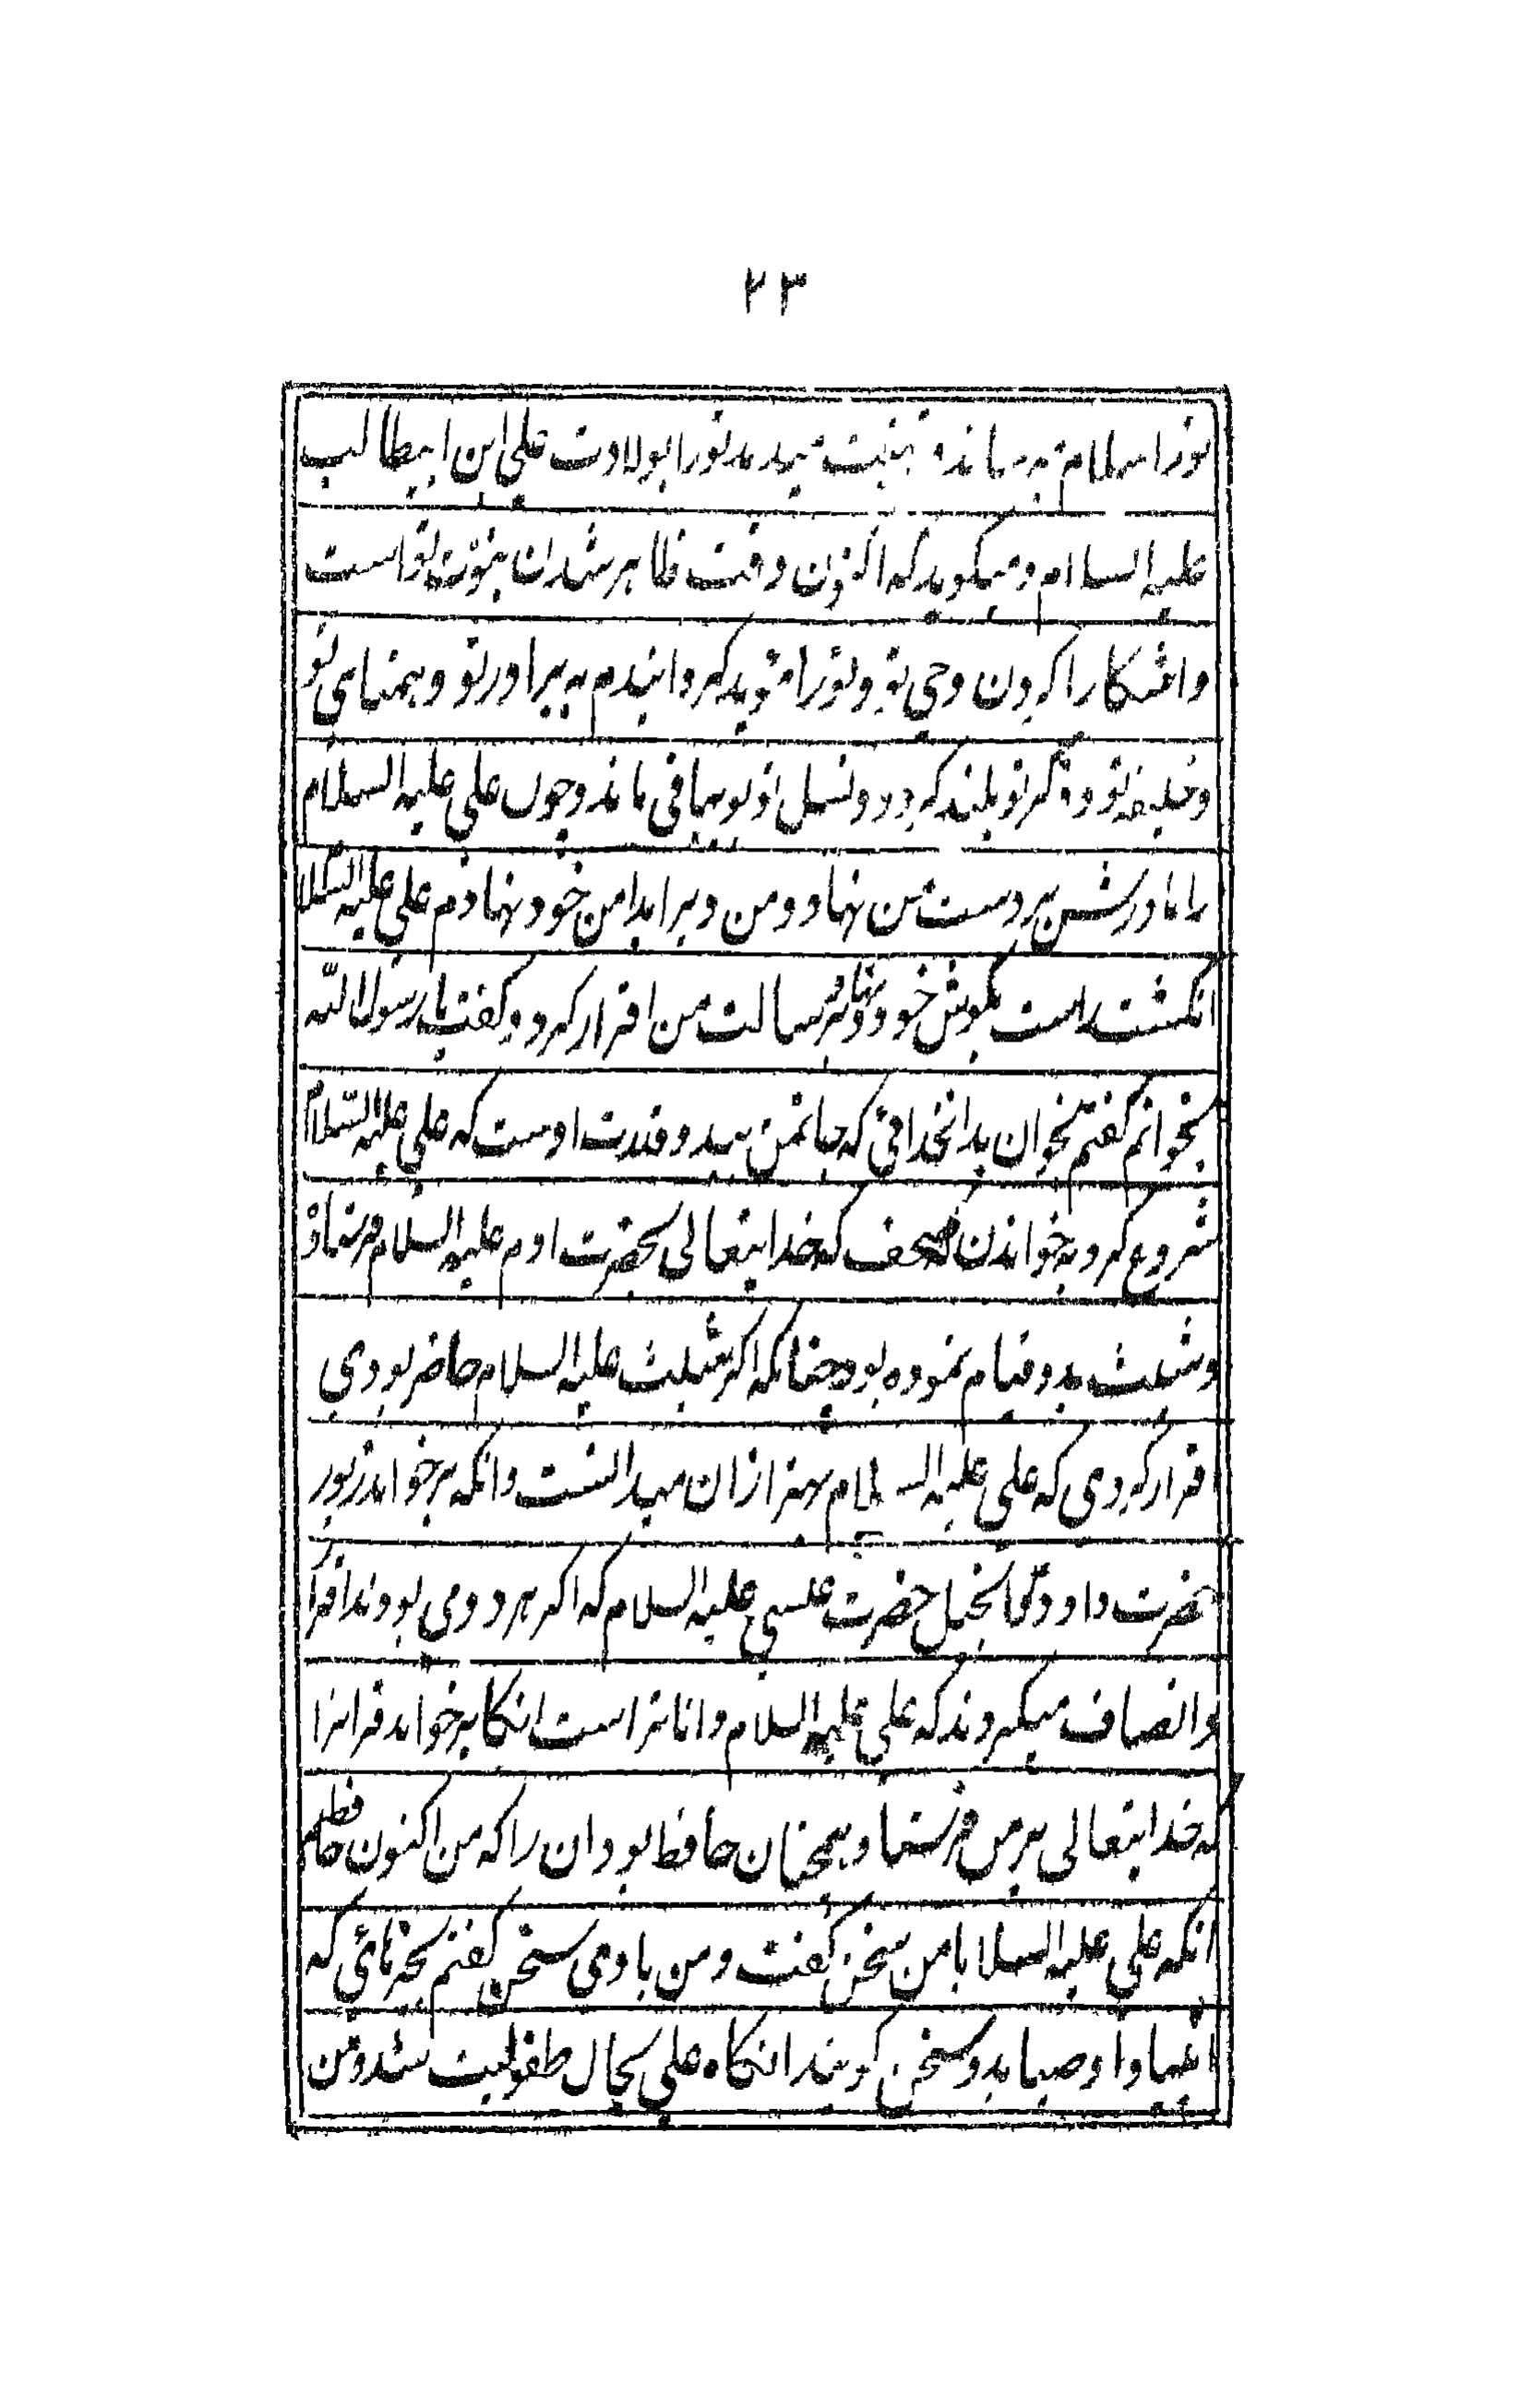 ۲۳
تورا سلام میرساند و تهنیت میدهد تورا بولادت علی ابن ابیطالب
علیه السلام و میگوید که اکنون وقت ظاهر شدن نبوّت تو است
و اشکارا کردن وحی تو و تورا مؤید کردانیدم به برادر تو و همتای تو
و خلیفه تو و ذکر تو بلند کرد و نسل تو باقی ماند و چون علی علیه السلام
را مادرش بر دست من نهاد و من ویرا بدامن خود نهادم علی علیه السلام
انکشت راست بکوش خود نهاد و برسالت من اقرار کرد و کفت یا رسول الله
بخوانم کفتم بخوان بدانخدائی که جانمن بید قدرت اوست که علی علیه السلام
شروع کرد به خواندن صحف که خدایتعالی بحضرت ادم علیه السلام فرستاد
و شیث بدو قیام نموده بود چنانکه اکر شیث علیه السلام حاضر بودی
اقرار کردی که علی علیه السلام بهتر ازان میدانست وانکه بر خواند زبور
حضرت داود و انجیل حضرت عیسی علیه السلام که اکر هر دو می بودند اقرار
و انصاف میکردند که علی علیه السلام داناتر است انکا بر خواند قرانرا
که خدایتعالی بر من فرستاد همچنان حافظ بود ان را که من اکنون حافظم
انکه علی علیه السلا با من سخن کفت و من با وی سخن کفتم سخنهائی که
انبیا و اوصیا بدو سخن کویند انکاه علی بحال طفولیت شد و من